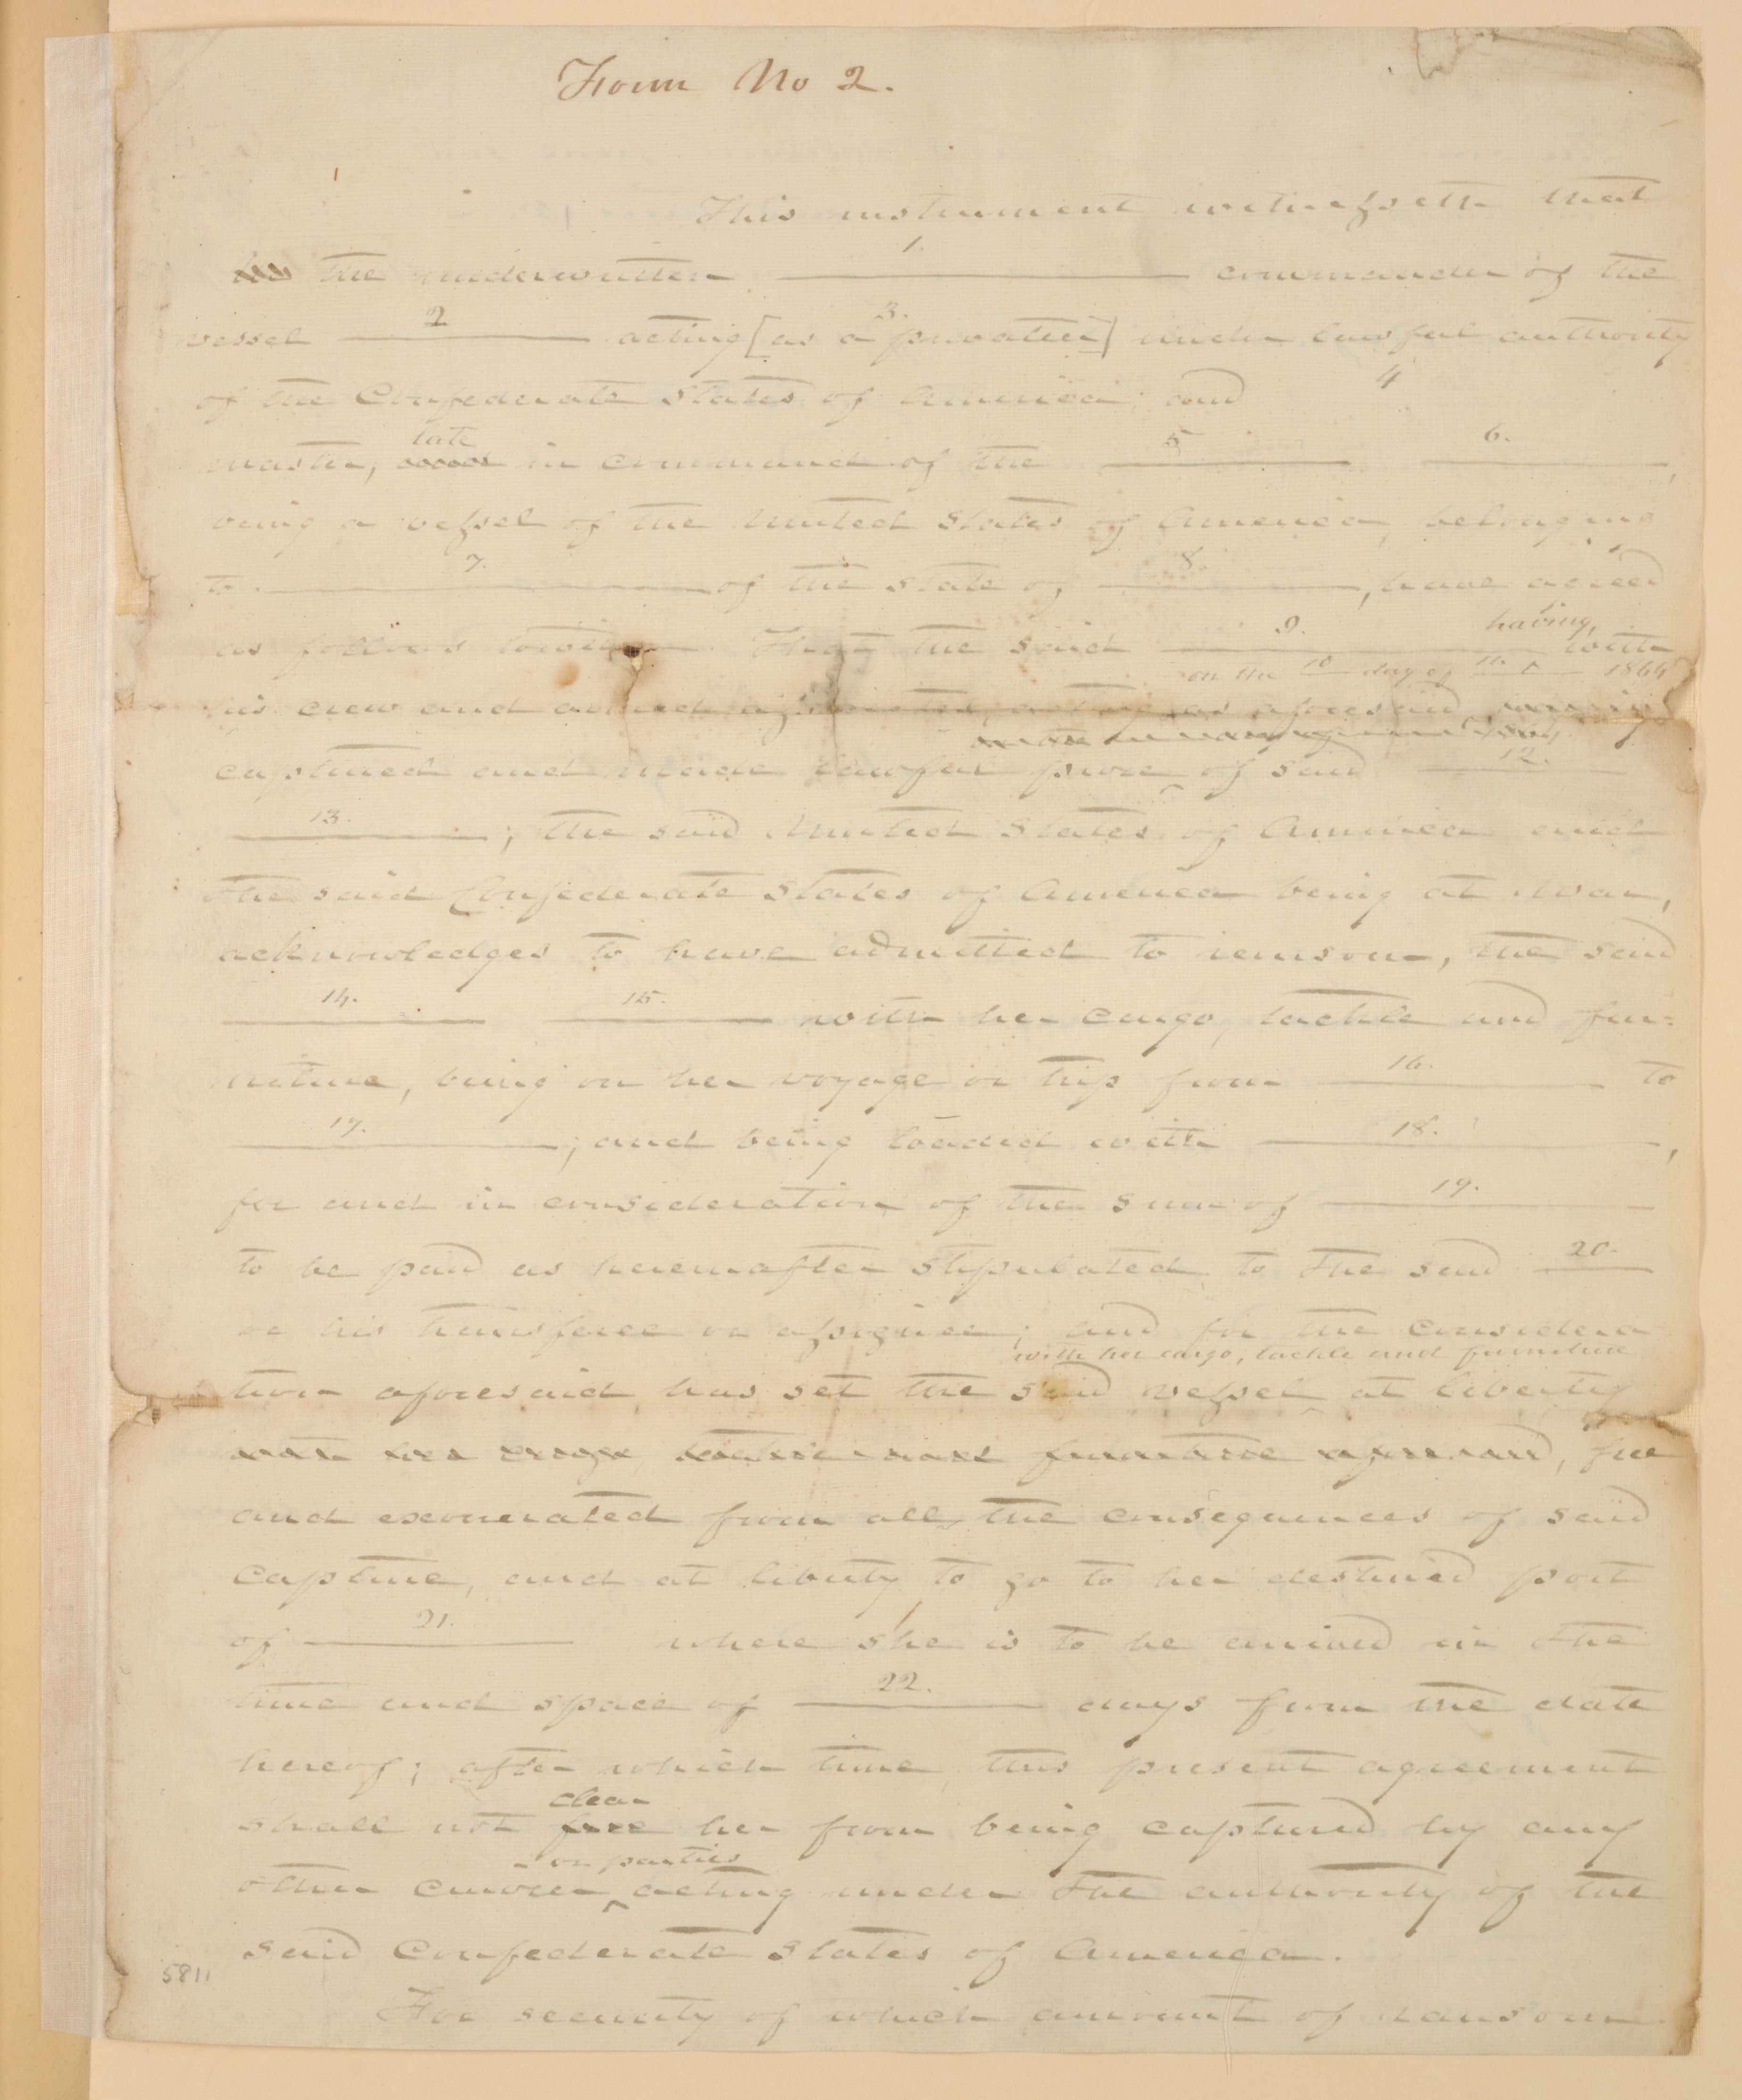 Form No 2.
This instrument witnesseth that
the underwritten 1. commander of the
vessel 2 acting [as a 3. privateer] under lawful authority
of the Confederate States of America; and 4
late
master, in command of the 5 6.,
being a vessel of the United States of America, belonging
to 7. of the State of 8., have agreed
having,
as follows towit: That the said 9. with
on the 10 day of 11. 1864
his crew and armed associates, acting as aforesaid,
captured and made lawful prize of said 12.
13.; the said United States of America and
the said Confederate States of America being at war,
acknowledges to have admitted to ransom, the said
14. 15. with her cargo, tackle and fur=
niture, being on her voyage or trip from 16. to
17.; and being loaded with 18.,
for and in consideration of the sum of 19.
to be paid as hereinafter stipulated to the said 20.
or his transferee or assignee; and for the considera
with her cargo, tackle and furniture
tion aforesaid, has set the said vessel at liberty
with her cargo, tackle and furniture aforesaid, free
and exonerated from all the consequences of said
capture, and at liberty to go to her destined port
of 21. where she is to be arrived in the
time and space of 22. days from the date
hereof; after which time, this present agreement
clear
shall not free her from being captured by any
or parties
other cruizer acting under the authority of the
said Confederate States of America.
5811
For security of which amount of ransom